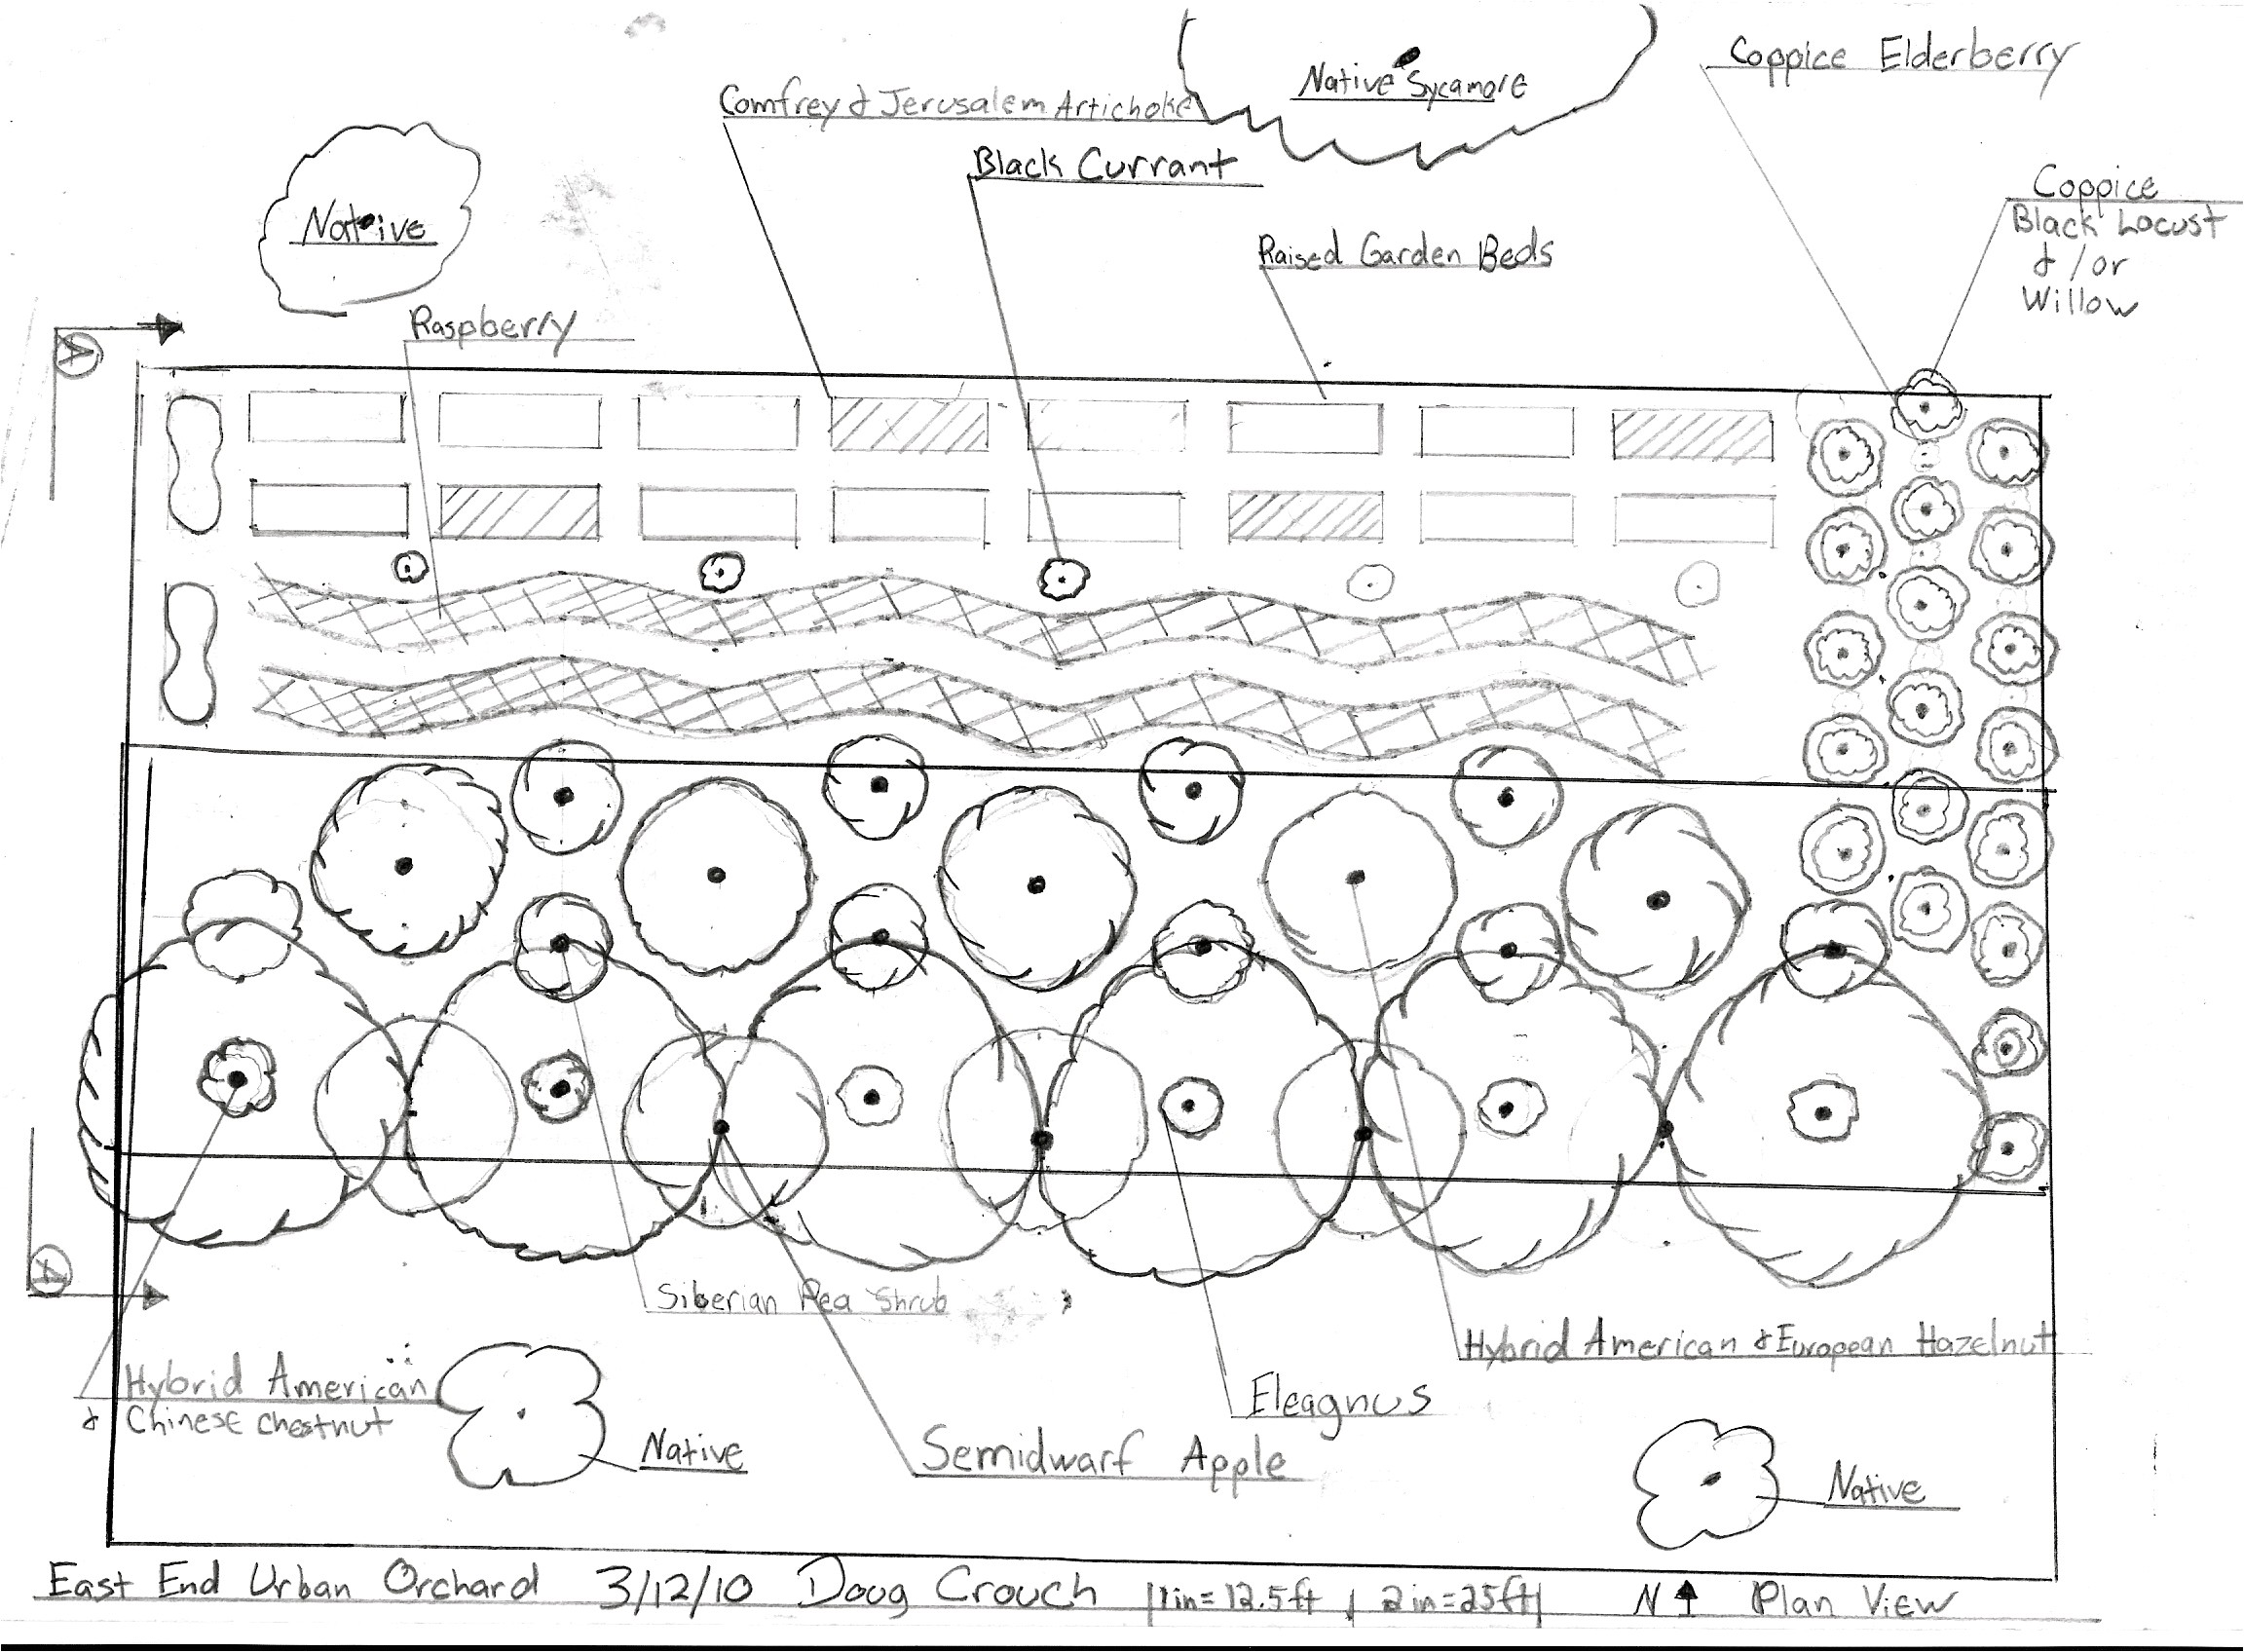 Coppice Elderberry
Native Sycamore
Comfrey & Jerusalem Artichoke
Black Currant
Coppice
Black Locust
& / or
Willow
Native
Raised Garden Beds
Raspberry
A
A
Siberian Pea Shrub
Hybrid American & European Hazelnut
Hybrid American
& Chinese chestnut
Eleagnus
Native
Semidwarf Apple
Native
East End Urban Orchard 3/12/10 Doug Crouch |1in=12.5ft | 2in=25ft| N Plan View